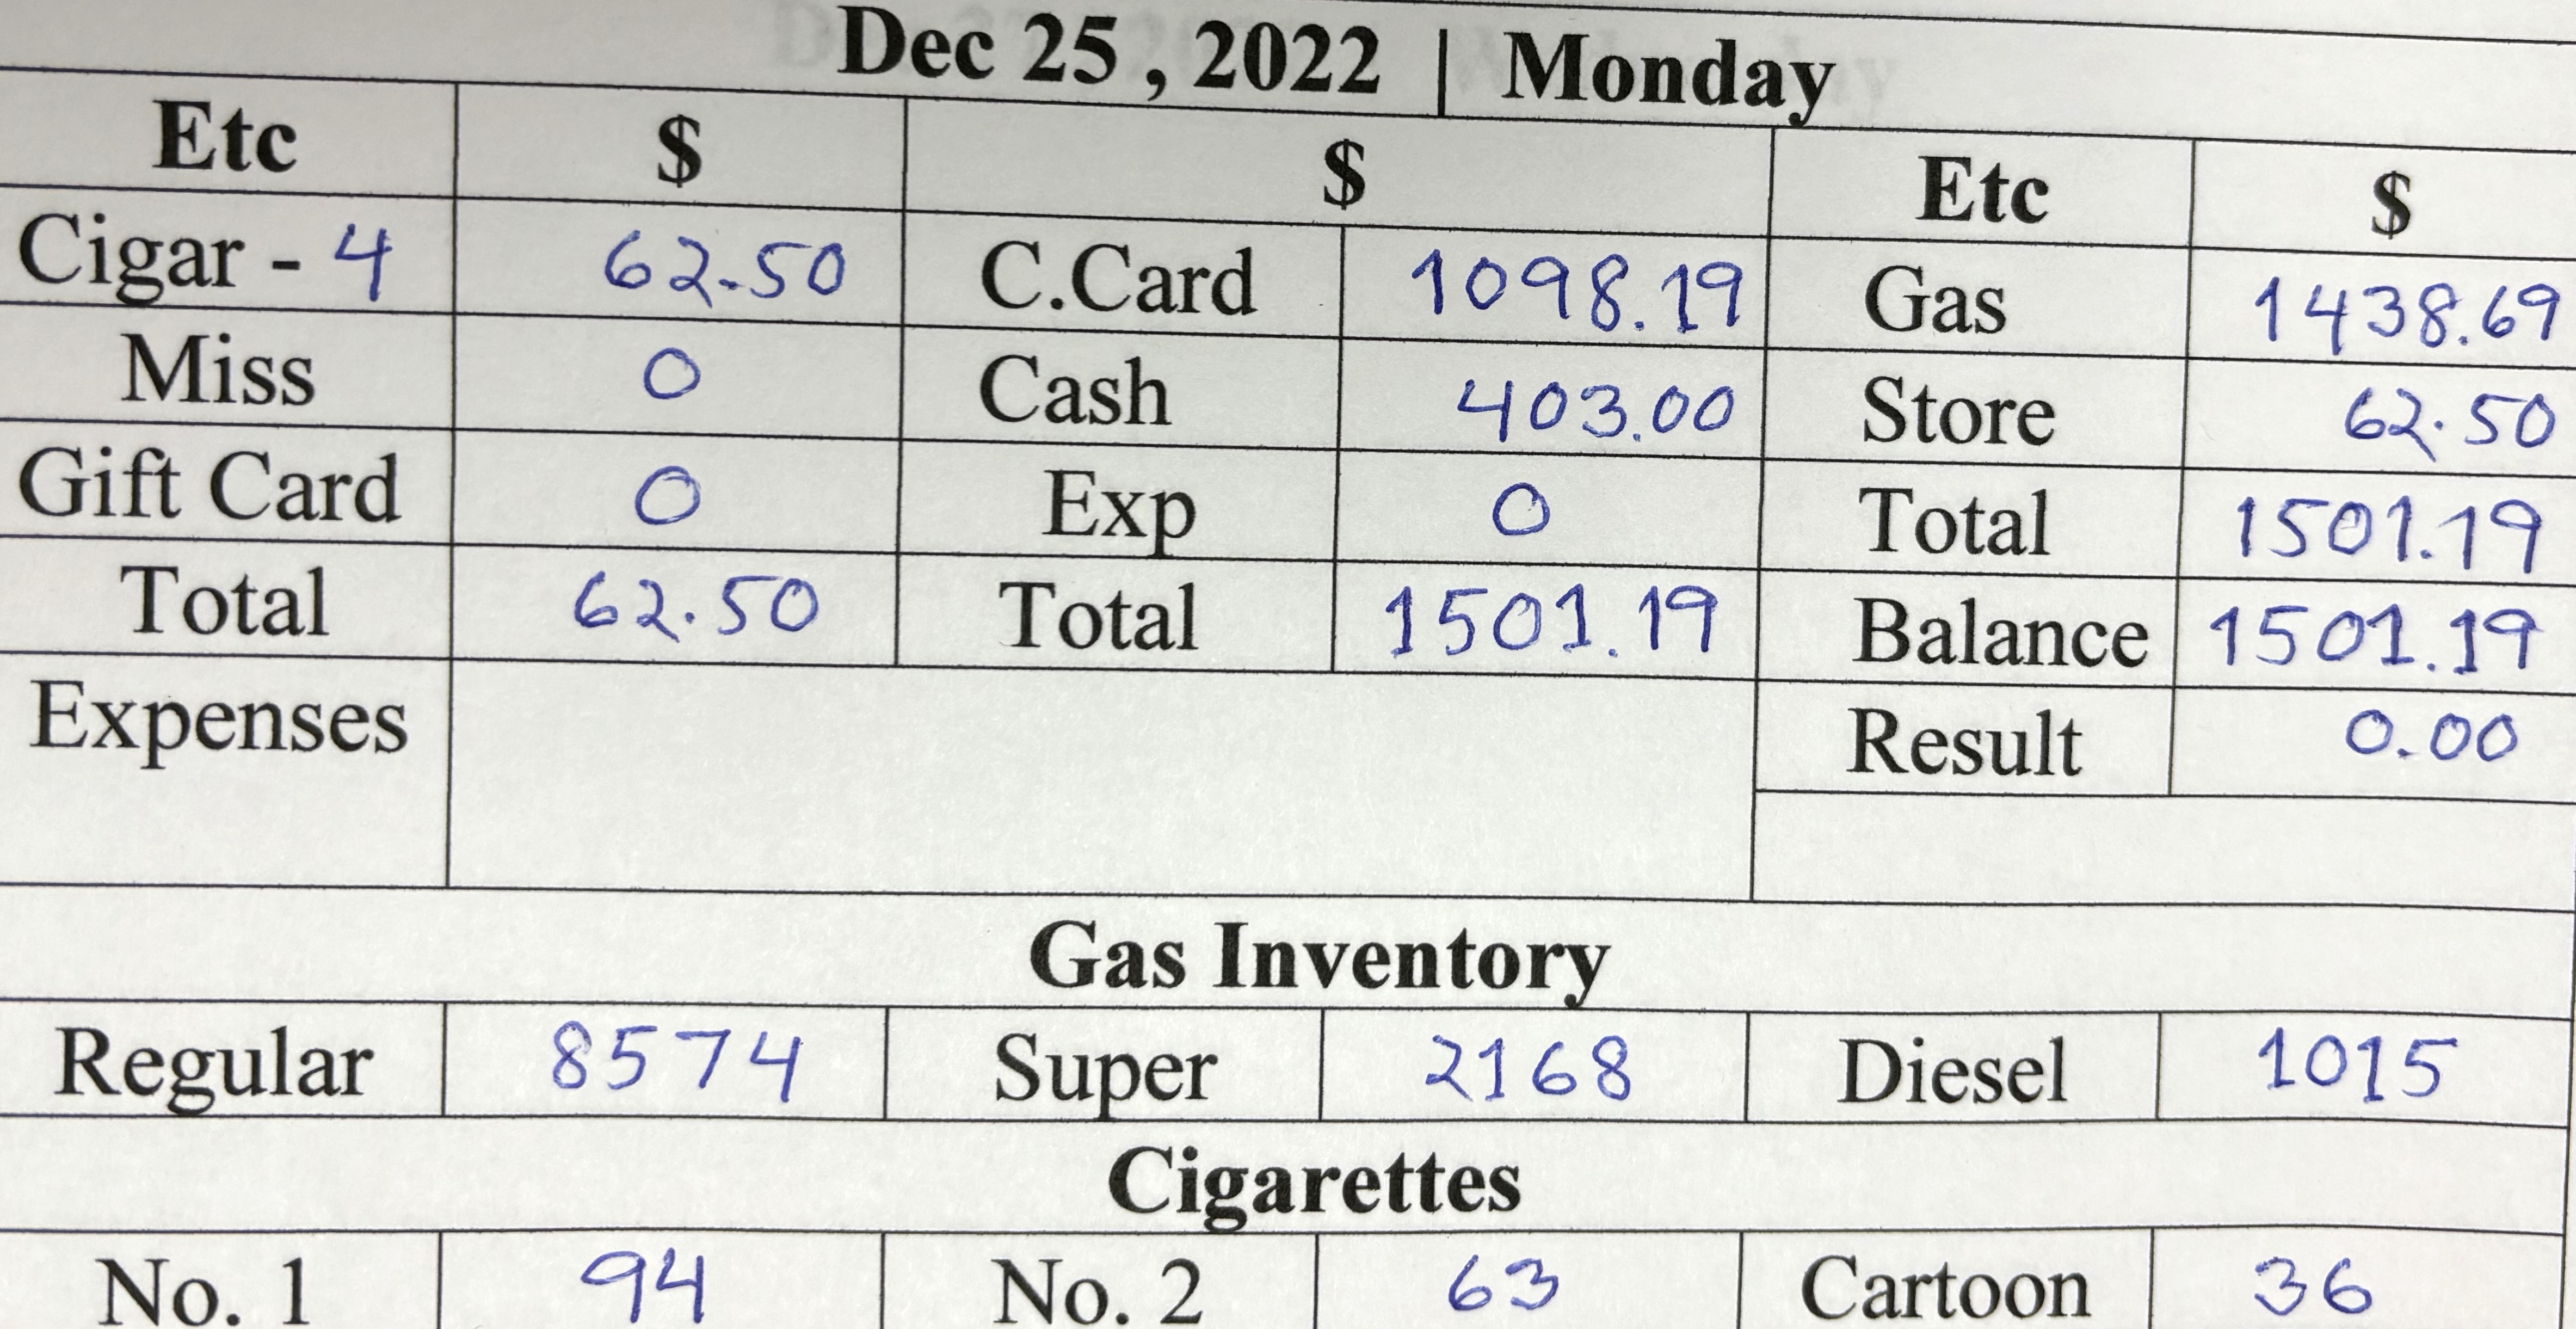 Dec 25 , 2022 | Monday
Etc $ $ Etc $
Cigar - 4 62.50 C.Card 1098.19 Gas 1438.69
Miss 0 Cash 403.00 Store 62.50
Gift Card 0 Exp 0 Total 1501.19
Total 62.50 Total 1501.19 Balance 1501.19
Expenses Result 0.00
Gas Inventory
Regular 8574 Super 2168 Diesel 1015
Cigarettes
No. 1 94 No. 2 63 Cartoon 36